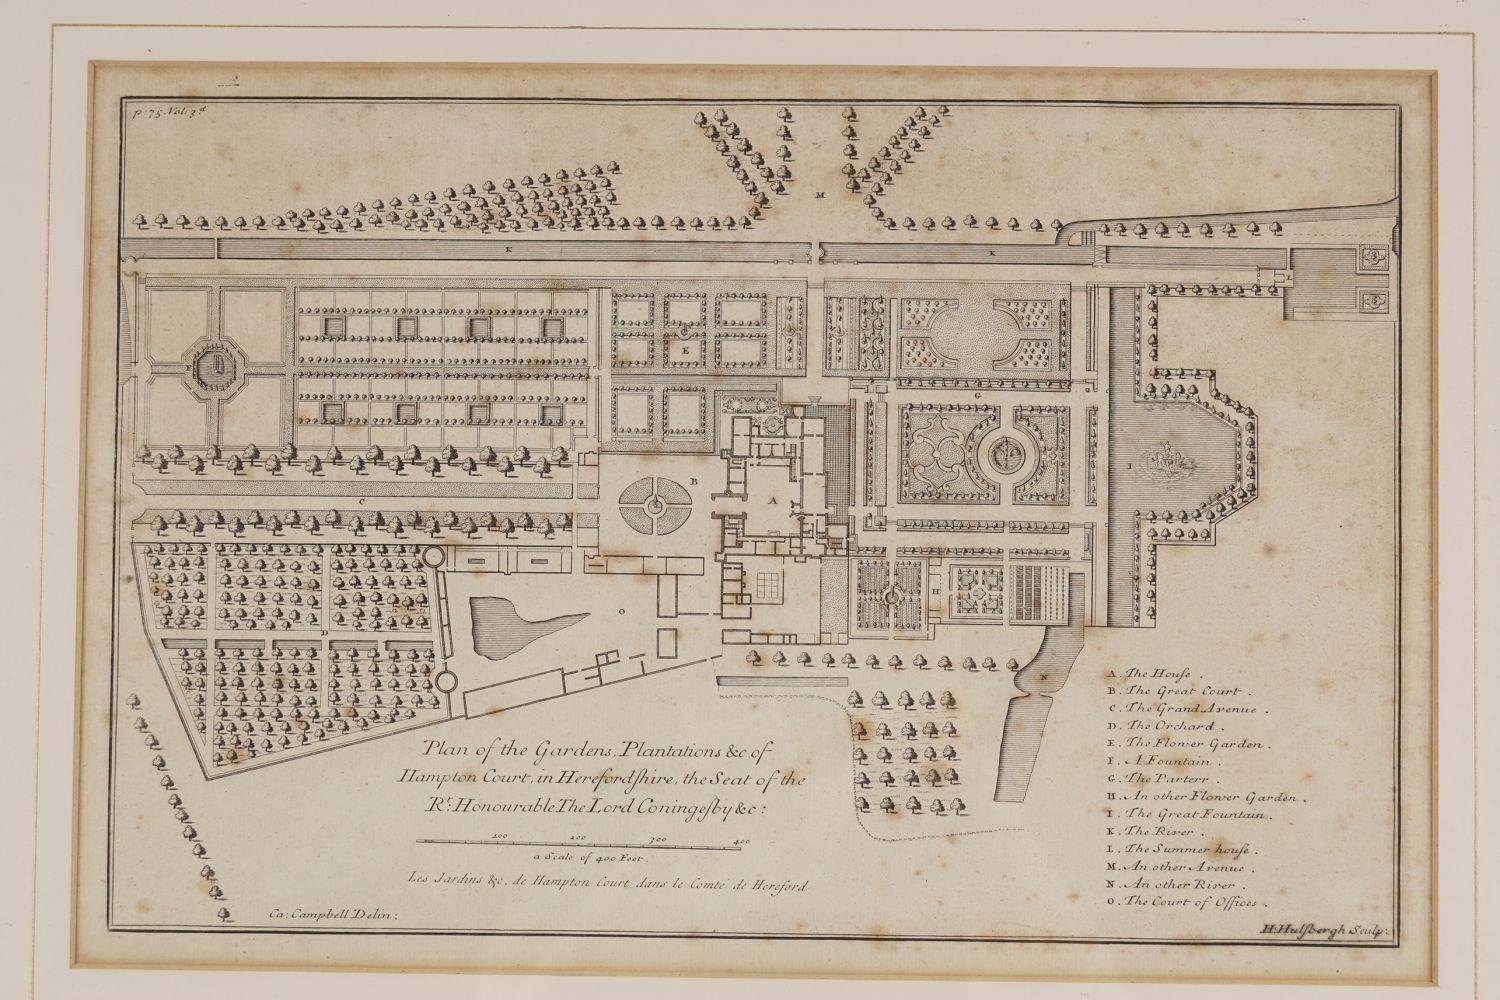 P: 75. Vol: 3.d
M
K
K
L
F
E
G
B
A
I
C
D
O
H
N
A. The House .
B. The Great Court .
C. The Grand Avenue .
D. The Orchard .
E. The Flower Garden .
F. A Fountain .
G. The Parterr .
H. An other Flower Garden .
I. The Great Fountain .
K. The River .
L. The Summer house .
M. An other Avenue .
N. An other River .
O. The Court of Offices .
Plan of the Gardens, Plantations &c of
Hampton Court, in Herefordshire, the Seat of the
Rt. Honourable The Lord Coningesby &c:
100 200 300 400
a Scale of 400 Feet.
Les Jardins &c. de Hampton Court dans le Comté de Hereford
Ca: Campbell Delin:
H: Hulsbergh Sculp: